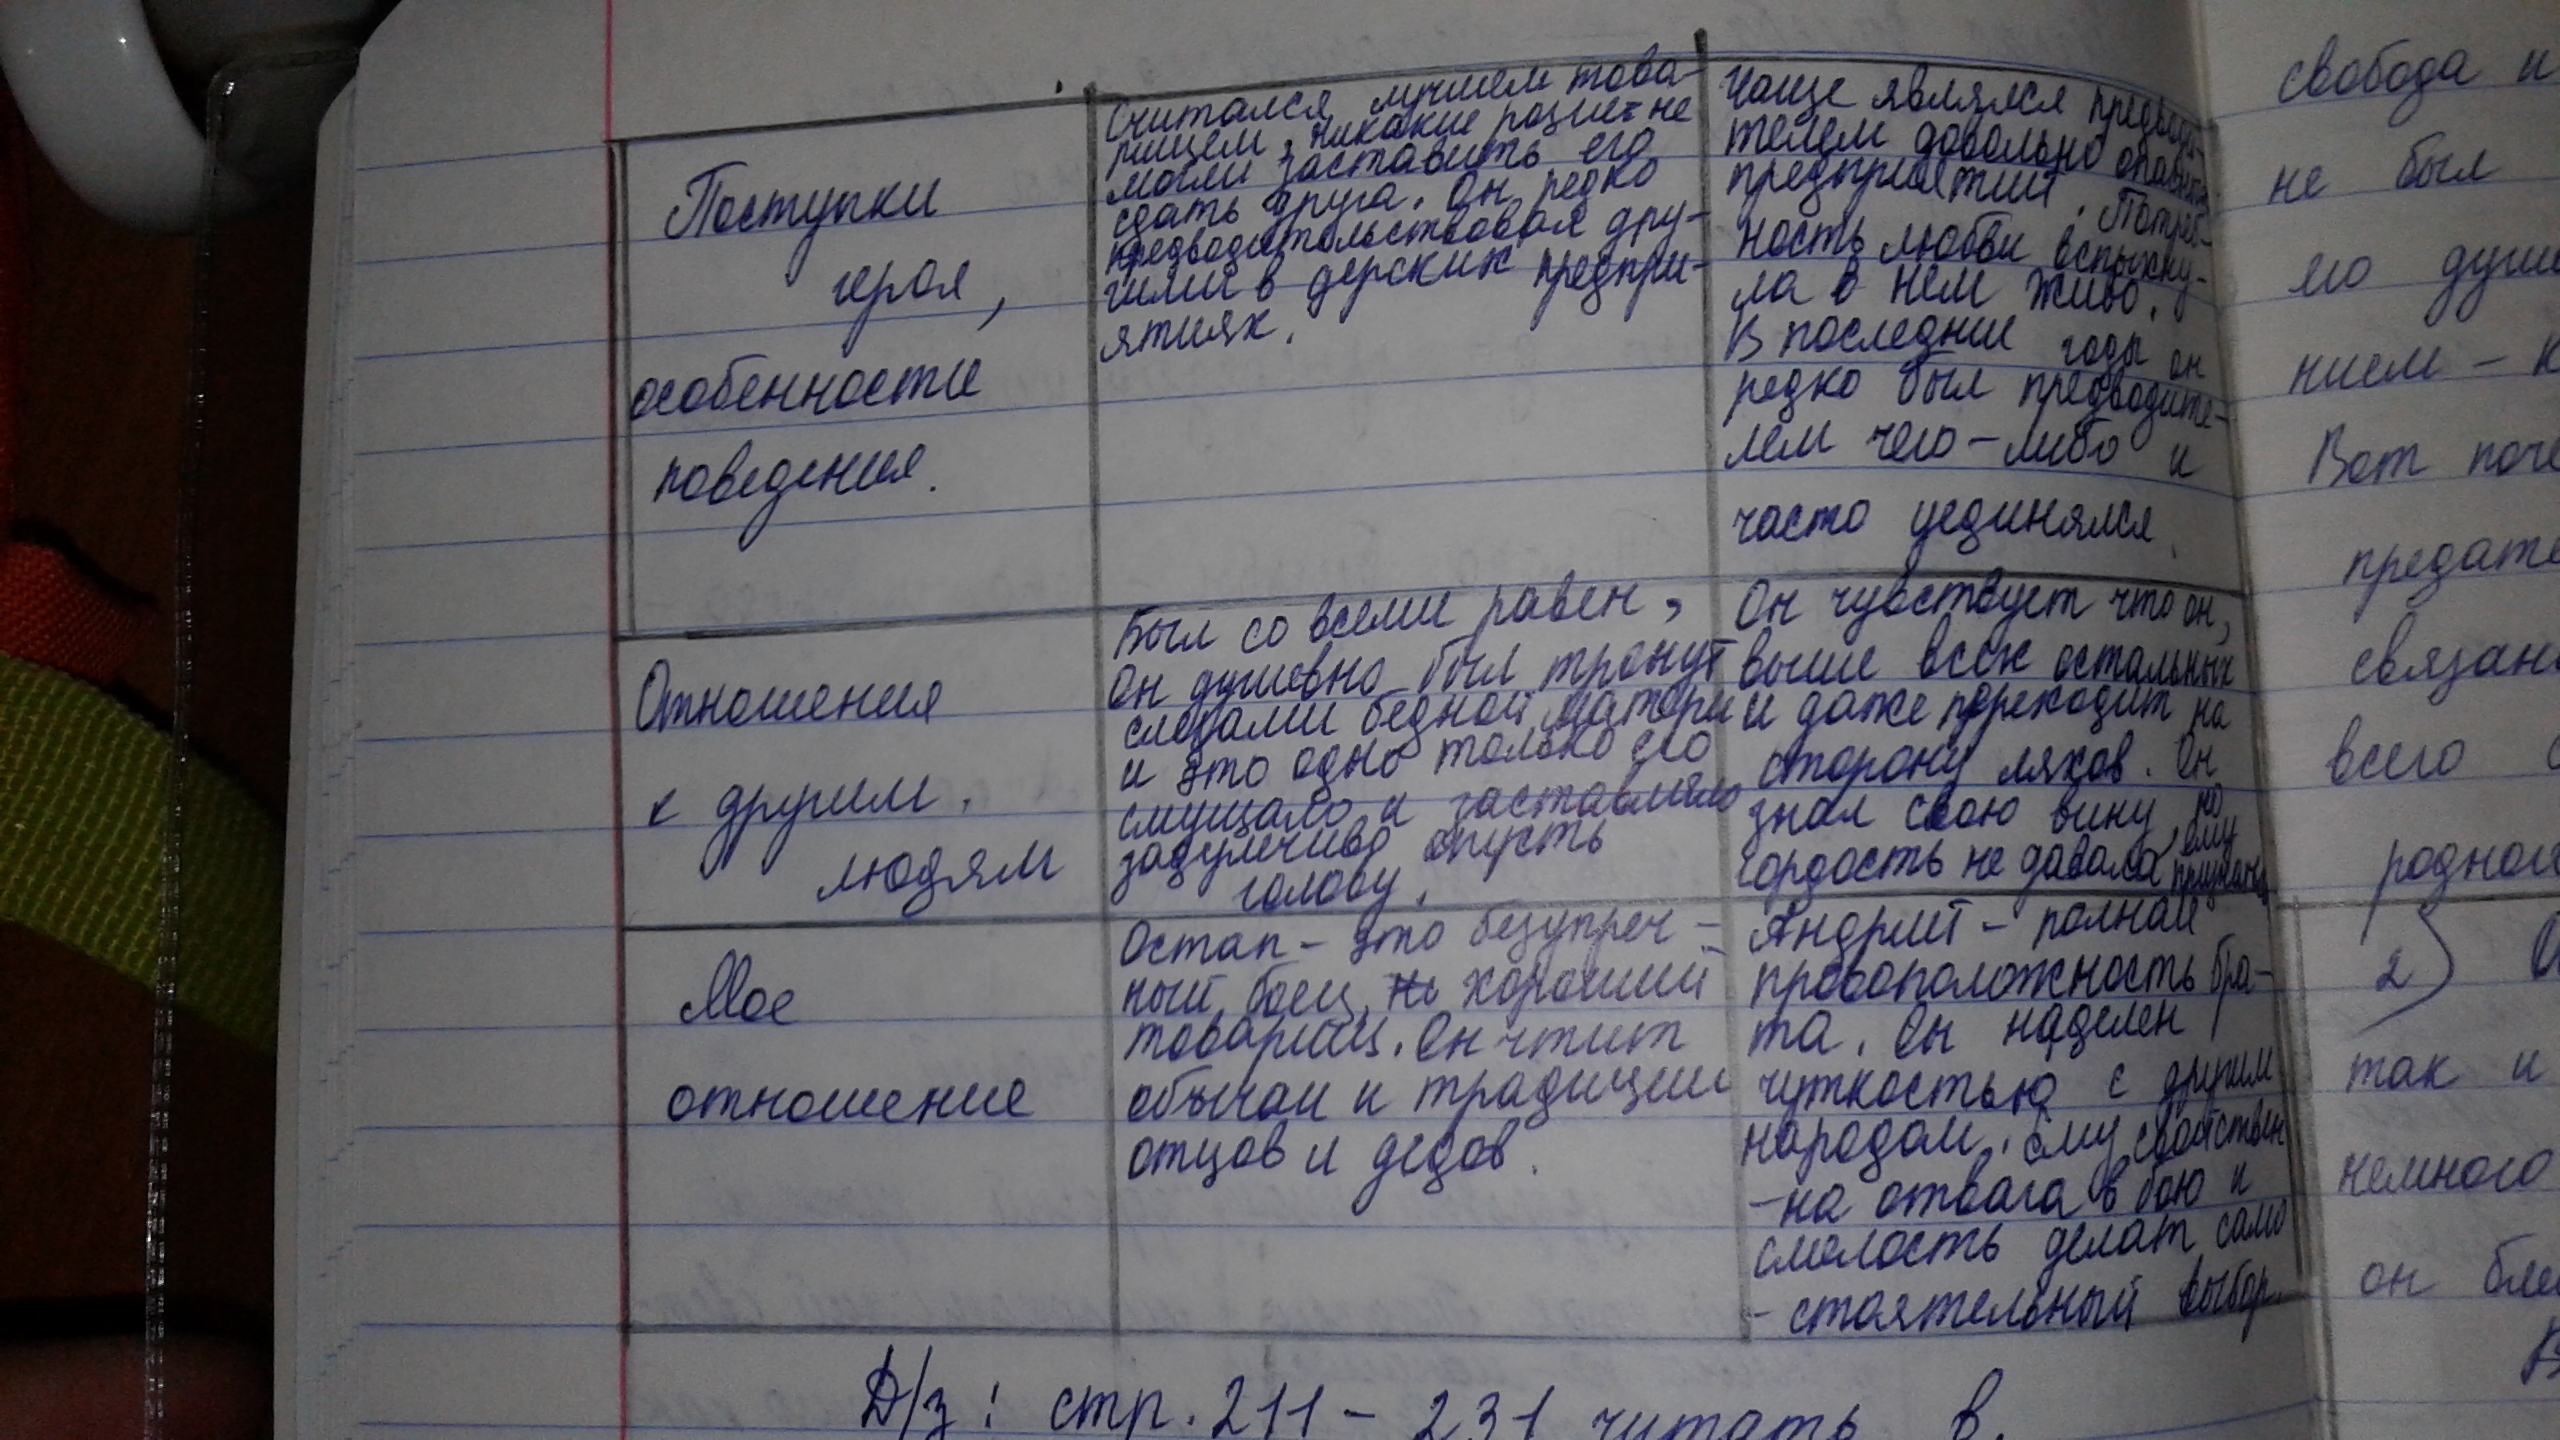 Поступки
героя,
особенности
поведения.
Считался лучшем това-
рищем, никакие розги не
могли заставить его
сдать друга. Он редко
предводительствовал дру-
гими в дерских предпри-
ятиях.
Чаще являлся предводи-
телем довольно опасных
предприятий. Потреб-
ность любви вспыхну-
ла в нем живо.
В последние годы он
редко был предводите-
лем чего-либо и
часто уединялся.
Отношения
к другим.
людям
Был со всеми равен,
Он душевно был тронут
слезами бедной матери
и это одно только его
смущало и заставляло
задумчиво опусть
голову.
Он чувствует что он,
выше всех остальных
и даже переходит на
сторону ляхов. Он
знал свою вину, но
гордость не давала ему
Мое
отношение
Остап - это безупреч-
ный боец, хороший
товарищ. Он чтит
обычаи и традиции
отцов и дедов.
Андрий - полная
провоположность бра-
та. Он наделен
чуткостью с другим
народом. Ему свойствен
-на отвага в бою и
смелость делат само
-стоятельный выбор.
Д/з: стр. 211 - 231 читать в.
свобода и
не был
его душе
нием - к
Вот поче
предате
связан
всего
родной
2)
так и
немного
он бле